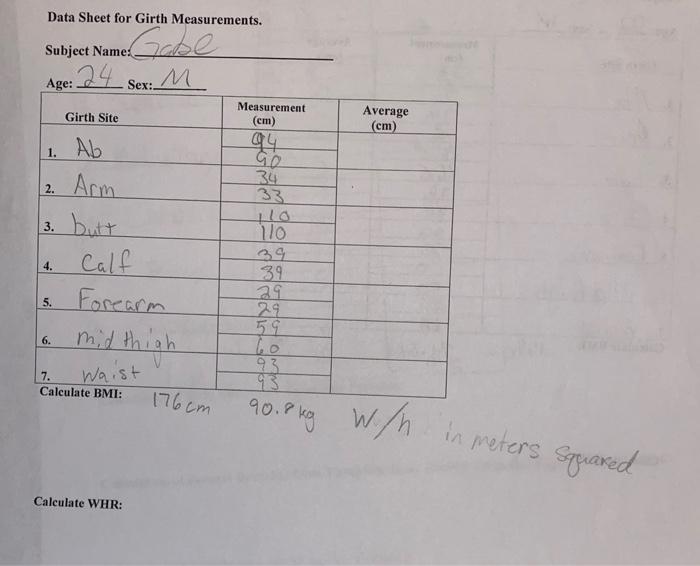 Data Sheet for Girth Measurements.
Subject Name: Gabe
Age: 24 Sex: M
Girth Site Measurement (cm) Average (cm)
1. Ab 94
90
2. Arm 34
33
3. butt 110
110
4. Calf 39
39
5. Forearm 29
29
6. mid thigh 59
60
7. Waist 93
93
Calculate BMI: 176 cm 90.8 kg W/h in meters squared
Calculate WHR: